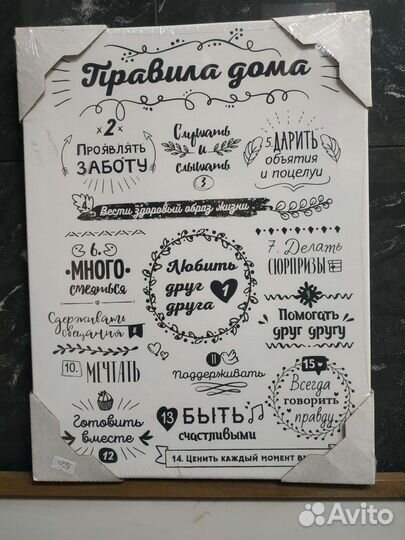 Правила дома
×2×
Проявлять
заботу
Слушать
и
слышать
3
5. Дарить
объятия
и поцелуи
Вести здоровый образ жизни
6.
много
смеяться
Любить
друг
друга
1
7. Делать
сюрпризы
Сдерживать
обещания
8
Помогать
друг другу
10.
мечтать
11
поддерживать
15
Всегда
говорить
правду
Готовить
вместе
12
13
Быть
счастливыми
14. Ценить каждый момент
Avito